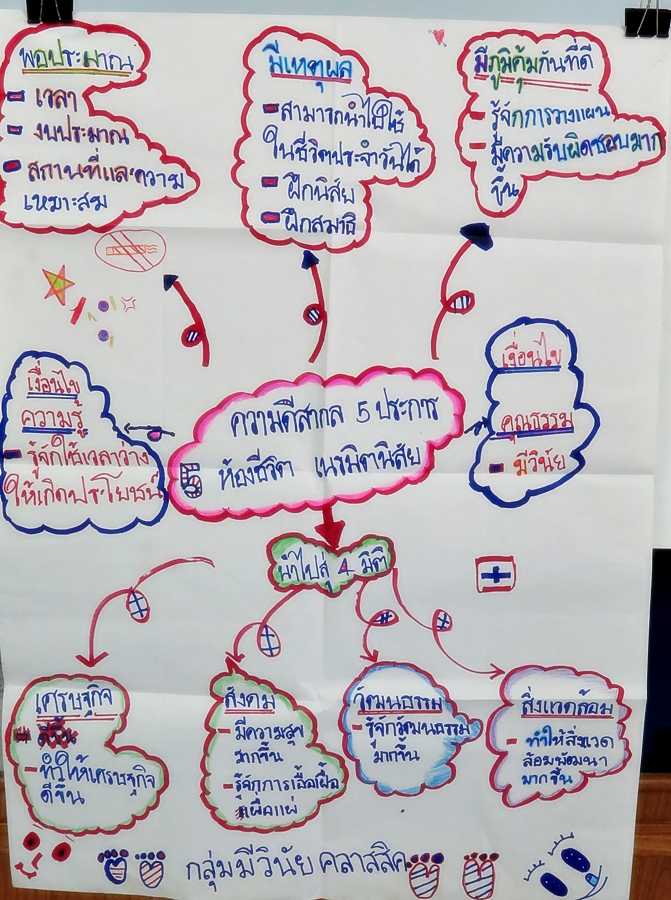 พอประมาณ
- เวลา
- งบประมาณ
- สถานที่และความ
เหมาะสม
มีเหตุผล
- สามารถนำไปใช้
ในชีวิตประจำวันได้
- ฝึกนิสัย
- ฝึกสมาธิ
มีภูมิคุ้มกันที่ดี
- รู้จักการวางแผน
- มีความรับผิดชอบมาก
ขึ้น
เงื่อนไข
ความรู้
- รู้จักใช้เวลาว่าง
ให้เกิดประโยชน์
ความดีสากล 5 ประการ
5 ห้องชีวิต เนรมิตนิสัย
เงื่อนไข
คุณธรรม
- มีวินัย
นำไปสู่ 4 มิติ
เศรษฐกิจ
- ทำให้เศรษฐกิจ
ดีขึ้น
สังคม
- มีความสุข
มากขึ้น
- รู้จักการเอื้อเฟื้อ
เผื่อแผ่
วัฒนธรรม
- รู้จักวัฒนธรรม
มากขึ้น
สิ่งแวดล้อม
- ทำให้สิ่งแวด
ล้อมพัฒนา
มากขึ้น
กลุ่มมีวินัย คลาสสิค